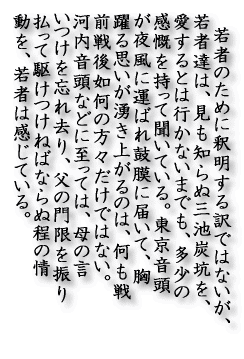 若者のために釈明する訳ではないが、
若者達は、見も知らぬ三池炭坑を、
愛するとは行かないまでも、多少の
感慨を持って聞いている。東京音頭
が夜風に運ばれ鼓膜に届いて、胸
躍る思いが湧き上がるのは、何も戦
前戦後如何の方々だけではない。
河内音頭などに至っては、母の言
いつけを忘れ去り、父の門限を振り
払って駆けつけねばならぬ程の情
動を、若者は感じている。